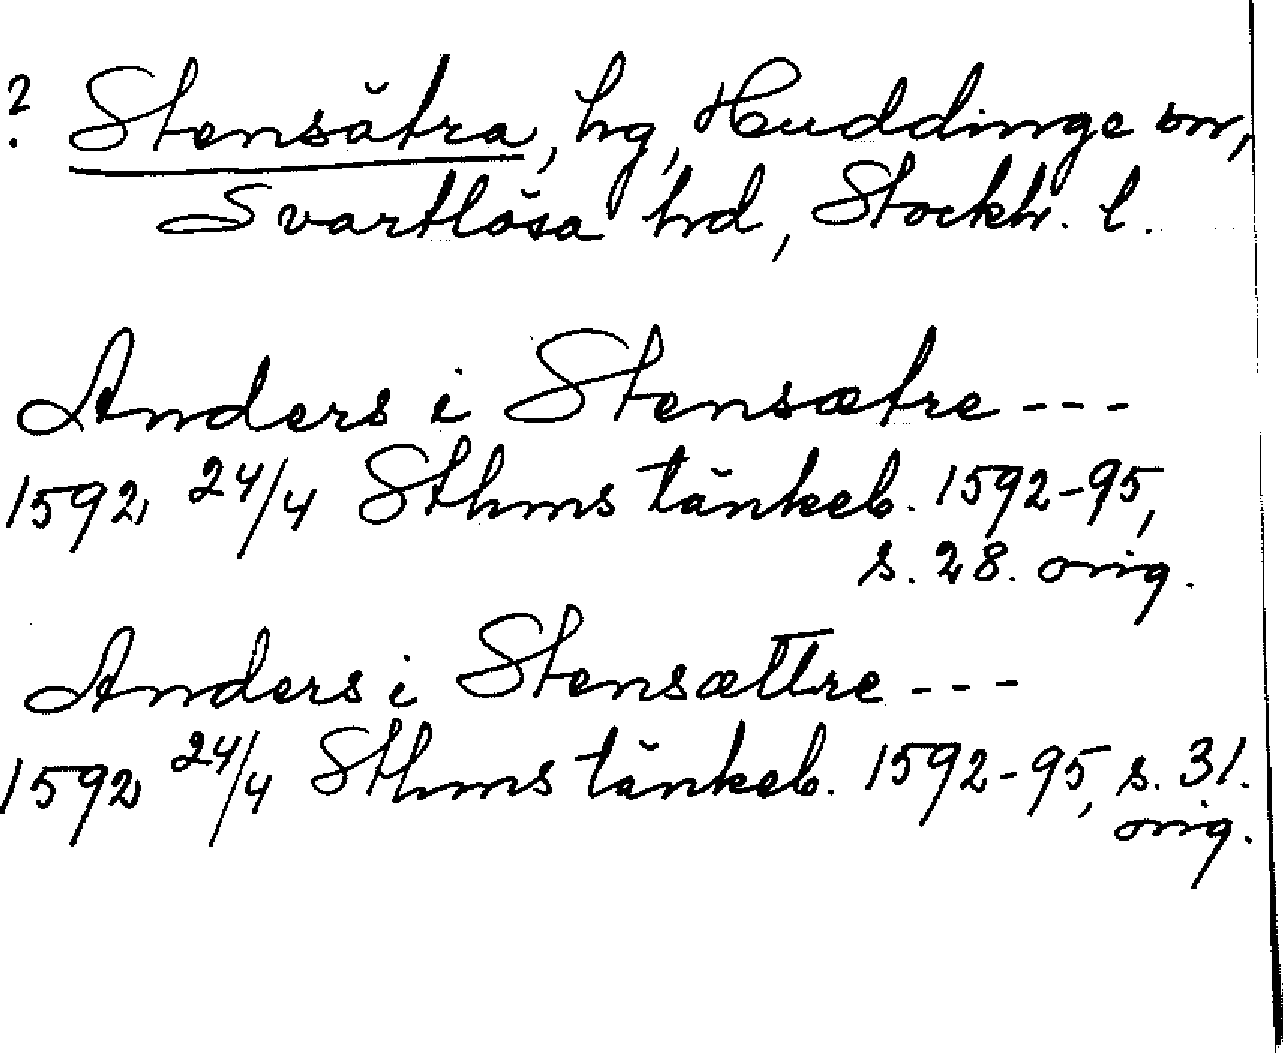 ? Stensätra, hg, Huddinge sn,
Svartlösa hd, Stockh. l.
Anders i Stensætre ---
1592 24/4 Sthms tänkeb. 1592-95,
s. 28. orig.
Anders i Stensættre ---
1592 24/4 Sthms tänkeb. 1592-95, s. 31.
orig.